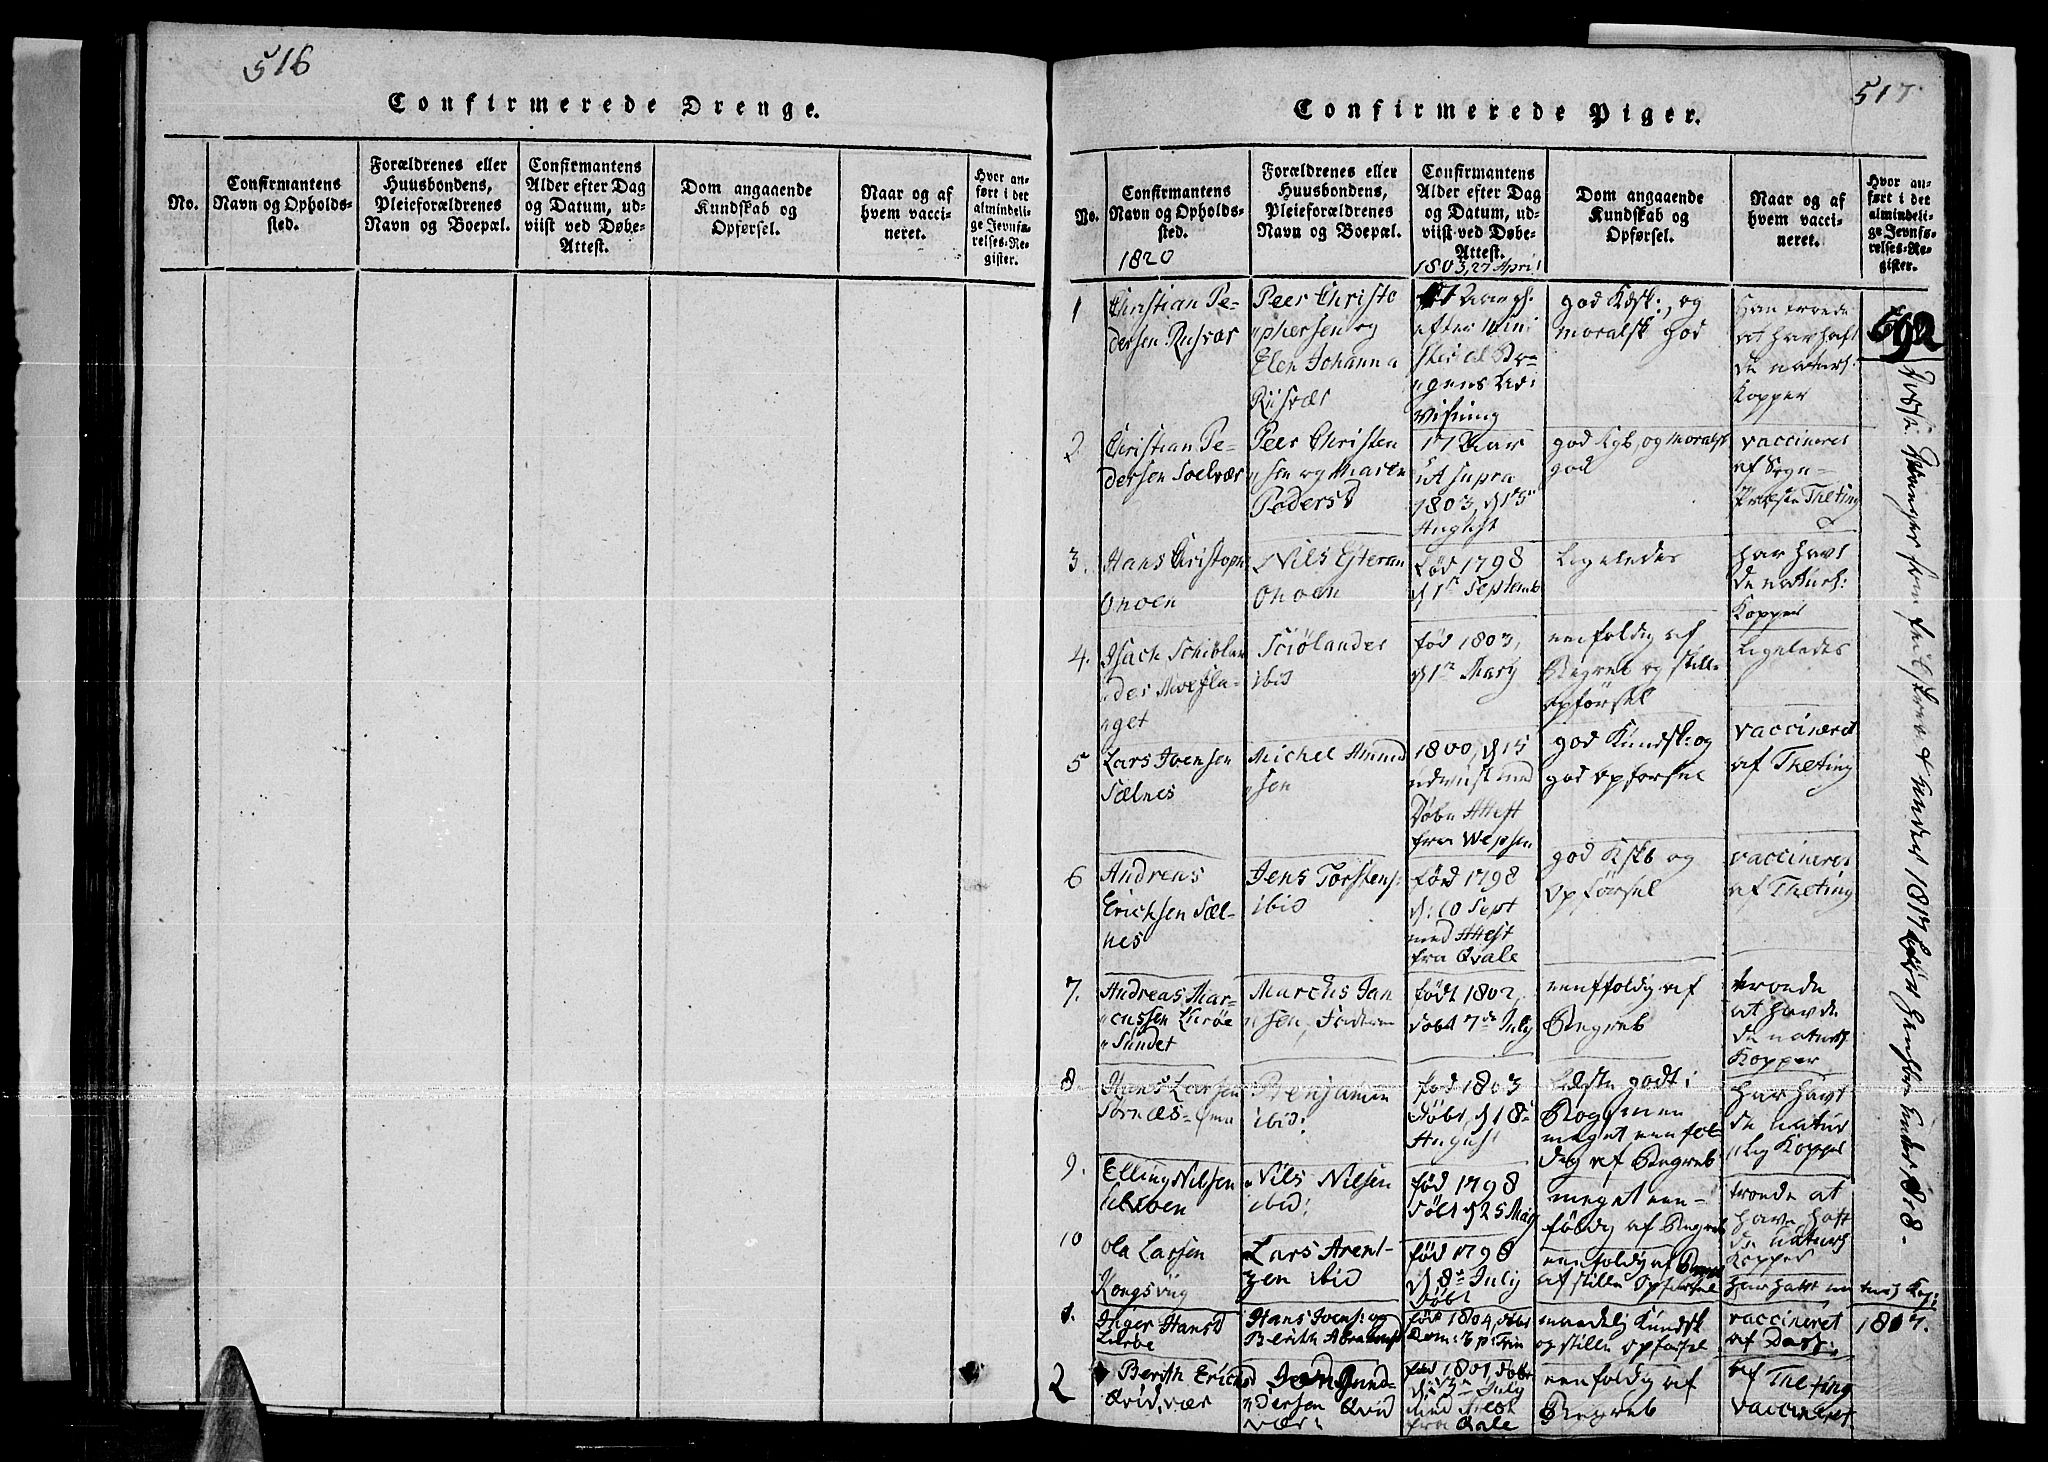 516
Confirmerede Drenge.
No.
Confirmantens
Navn og Opholds-
sted.
Forældrenes eller
Huusbondens,
Pleieforældrenes
Navn og Boepæl.
Confirmantens
Alder efter Dag
og Datum, ud-
viist ved Døbe-
Attest.
Dom angaaende
Kundskab og
Opførsel.
Naar og af
hvem vacci-
neret.
Hvor an-
ført i det
almindeli-
ge Jevnfø-
relses-Re-
gister.
517
Confirmerede Piger.
No.
Confirmantens
Navn og Opholds-
sted.
1820
Forældrenes eller
Huusbondens,
Pleieforældrenes
Navn og Boepæl.
Confirmantens
Alder efter Dag
og Datum, ud-
viist ved Døbe-
Attest.
Dom angaaende
Kundskab og
Opførsel.
Naar og af
hvem vacci-
neret.
Hvor an-
ført i det
almindeli-
ge Jevnfø-
relses-Re-
gister.
1
Christian Pe-
dersen Risvær
Peer Christo
phersen og
Elen Johanna
Riisvær
1803, 27 April
efter Mini
sterial Bo-
gens Ud
visning
god Kdsk:, og
moralsk god
han troede
at har haft
de naturl:
Kopper
592
2
Christian Pe-
dersen Soelvær
Peer Christen
sen og Maren
Pedersd
17 Aar
ut supra
1803, d 15
August
god Kgb, og moralsk
god
vaccineret
af Sogn-
Præsten Theting
3.
Hans Christoph
Onøen
Nils Esteran
Onøen
Fød 1798
d 1 Septemb
Ligeledes
har havt
de naturl:
Kopper
4.
Isach Schiølan
der
get
Sciølander
ibid
fød 1803,
d 1 Marty
eenfoldig af
Begreb og stille
opførsel
Ligeledes
5
Lars Ivensen
Sælnes
Michel Amund
sen
1800, d 15
udviist med
Døbe Attest
fra Wepsen
god Kundsk: og
god opførsel
vaccineret
af Theting
6
Andreas
Erichsen Sæl-
nes
Jens Torstens:
ibid
fød 1798
d: 10 Sept
med Attest
fra Qvale
god Kskb og
opførsel
vaccineret
af Theting
7.
Andreas Mar-
cussen Lurøe
Sundet
Marcus Jan
sen,
født 1802,
døbt 7de July
eenfoldig af
Begreb
troede
at havde
de naturl
Kopper
8
Hans Larsen
Tornes-
Benjamin
ibid:
fød 1803
døbt, d 18
August
Læste godt i
Bog men
meget eenfol
dig af Begreb
har havt
de natur
lig Kopper
9.
Elling Nilsen
Nils Nilsen
ibid:
fød 1798
døbt d 25 May
meget een-
foldig af Begreb
troede at
have hatt
de naturl
Kopper
10
Ola Larsen
Kongsviig
Lars Arent-
zen ibid
fød 1798
d 8 July
Døbt
eenfoldig af Begreb
af stille Opførsel
har hatt na
turl Kop:
1.
Inger Hansd
Lurøe
Hans Ivens: og
Berith
fød 1804, døbt
Dom: 3 p: Trin
maadelig Kundsk
og stille opførsel
vaccineret
af Dass:
1817.
2
Berith Ericsd
Qvidvær
Jon Gund-
dersen Qvid
vær:
fød 1801, døbt
d: 3 July
med Attest
fra Qvale
eenfoldig af
Begreb
af Theting
vaccineret